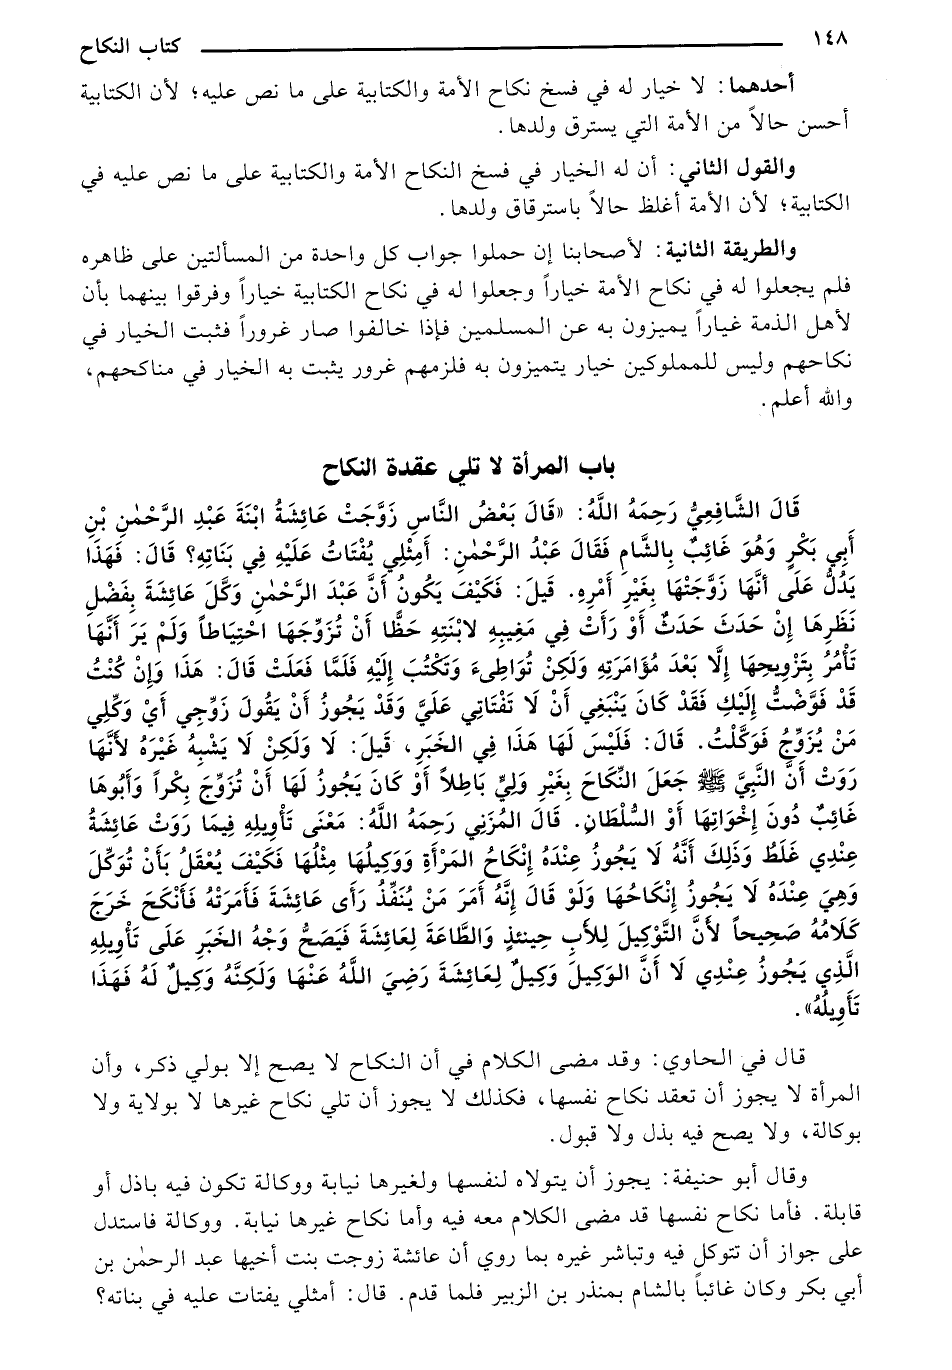 ١٤٨ كتاب النكاح
أحدهما: لا خيار له في فسخ نكاح الأمة والكتابية على ما نص عليه؛ لأن الكتابية
أحسن حالاً من الأمة التي يسترق ولدها.
والقول الثاني: أن له الخيار في فسخ النكاح الأمة والكتابية على ما نص عليه في
الكتابية؛ لأن الأمة أغلظ حالاً باسترقاق ولدها.
والطريقة الثانية: لأصحابنا إن حملوا جواب كل واحدة من المسألتين على ظاهره
فلم يجعلوا له في نكاح الأمة خياراً وجعلوا له في نكاح الكتابية خياراً وفرقوا بينهما بأن
لأهل الذمة غياراً يميزون به عن المسلمين فإذا خالفوا صار غروراً فثبت الخيار في
نكاحهم وليس للمملوكين خيار يتميزون به فلزمهم غرور يثبت به الخيار في مناكحهم،
والله أعلم.
باب المرأة لا تلي عقدة النكاح
قَالَ الشَّافِعِيُّ رَحِمَهُ اللَّهُ: «قَالَ بَعْضُ النَّاسِ زَوَّجَتْ عَائِشَةُ ابْنَةَ عَبْدِ الرَّحْمٰنِ بْنِ
أَبِي بَكْرٍ وَهُوَ غَائِبٌ بِالشَّامِ فَقَالَ عَبْدُ الرَّحْمٰنِ: أَمِثْلِي يُفْتَاتُ عَلَيْهِ فِي بَنَاتِهِ؟ قَالَ: فَهَذَا
يَدُلُّ عَلَى أَنَّهَا زَوَّجَتْهَا بِغَيْرِ أَمْرِهِ. قِيلَ: فَكَيْفَ يَكُونُ أَنَّ عَبْدَ الرَّحْمٰنِ وَكَّلَ عَائِشَةَ بِفَضْلِ
نَظَرِهَا إِنْ حَدَثَ حَدَثٌ أَوْ رَأَتْ فِي مَغِيبِهِ لابْنَتِهِ حَظًّا أَنْ تُزَوِّجَهَا احْتِيَاطاً وَلَمْ يَرَ أَنَّهَا
تَأْمُرُ بِتَزْوِيجِهَا إِلَّا بَعْدَ مُؤَامَرَتِهِ وَلَكِنْ تُوَاطِىءَ وَتَكْتُبَ إِلَيْهِ فَلَمَّا فَعَلَتْ قَالَ: هَذَا وَإِنْ كُنْتُ
قَدْ فَوَّضْتُ إِلَيْكِ فَقَدْ كَانَ يَنْبَغِي أَنْ لَا تَفْتَاتِي عَلَيَّ وَقَدْ يَجُوزُ أَنْ يَقُولَ زَوِّجِي أَيْ وَكِّلِي
مَنْ يُزَوِّجُ فَوَكَّلْتُ. قَالَ: فَلَيْسَ لَهَا هَذَا فِي الخَبَرِ، قِيلَ: لَا وَلَكِنْ لَا يَشْبِهُ غَيْرَهُ لأَنَّهَا
رَوَتْ أَنَّ النَّبِيَّ ﷺ جَعَلَ النِّكَاحَ بِغَيْرِ وَلِيٍّ بَاطِلاً أَوْ كَانَ يَجُوزُ لَهَا أَنْ تُزَوِّجَ بِكْراً وَأَبُوهَا
غَائِبٌ دُونَ إِخْوَاتِهَا أَوْ السُّلْطَانِ. قَالَ المُزَنِي رَحِمَهُ اللَّهُ: مَعْنَى تَأْوِيلِهِ فِيمَا رَوَتْ عَائِشَةُ
عِنْدِي غَلَطٌ وَذَلِكَ أَنَّهُ لَا يَجُوزُ عِنْدَهُ إِنْكَاحُ المَرْأَةِ وَوَكِيلُهَا مِثْلُهَا فَكَيْفَ يُعْقَلُ بَأَنْ تُوَكِّلَ
وَهِيَ عِنْدَهُ لَا يَجُوزُ إِنْكَاحُهَا وَلَوْ قَالَ إِنَّهُ أَمَرَ مَنْ يُنَفِّذُ رَأَى عَائِشَةَ فَأَمَرَتْهُ فَأَنْكَحَ خَرَجَ
كَلَامُهُ صَحِيحاً لأَنَّ التَّوْكِيلَ لِلأَبِ حِينَئِذٍ وَالطَّاعَةَ لِعَائِشَةَ فَيَصَحُّ وَجْهُ الخَبَرِ عَلَى تَأْوِيلِهِ
الَّذِي يَجُوزُ عِنْدِي لَا أَنَّ الوَكِيلَ وَكِيلٌ لِعَائِشَةَ رَضِيَ اللَّهُ عَنْهَا وَلَكِنَّهُ وَكِيلٌ لَهُ فَهَذَا
تَأْوِيلُهُ».
قال في الحاوي: وقد مضى الكلام في أن النكاح لا يصح إلا بولي ذكر، وأن
المرأة لا يجوز أن تعقد نكاح نفسها، فكذلك لا يجوز أن تلي نكاح غيرها لا بولاية ولا
بوكالة، ولا يصح فيه بذل ولا قبول.
وقال أبو حنيفة: يجوز أن يتولاه لنفسها ولغيرها نيابة ووكالة تكون فيه باذل أو
قابلة. فأما نكاح نفسها قد مضى الكلام معه فيه وأما نكاح غيرها نيابة. ووكالة فاستدل
على جواز أن تتوكل فيه وتباشر غيره بما روي أن عائشة زوجت بنت أخيها عبد الرحمٰن بن
أبي بكر وكان غائباً بالشام بمنذر بن الزبير فلما قدم. قال: أمثلي يفتات عليه في بناته؟